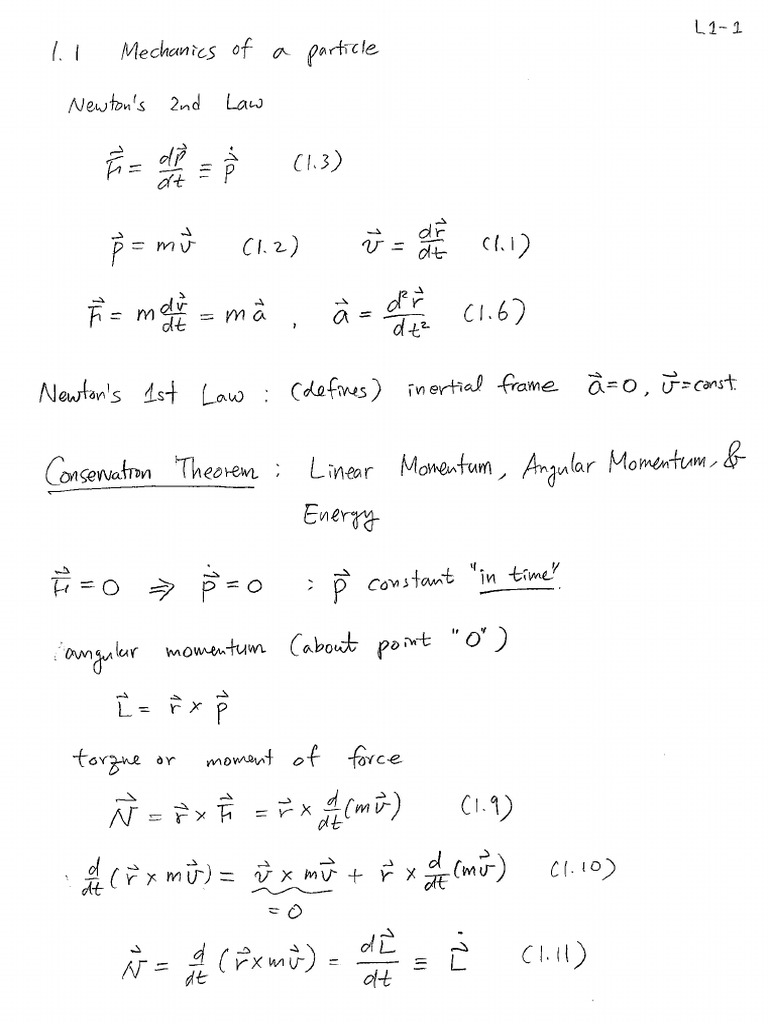 L1-1
1.1 Mechanics of a particle
Newton's 2nd Law
F⃗ = dp⃗/dt ≡ ṗ⃗ (1.3)
p⃗ = mv⃗ (1.2) v⃗ = dr⃗/dt (1.1)
F⃗ = m dv⃗/dt = ma⃗ , a⃗ = d²r⃗/dt² (1.6)
Newton's 1st Law : (defines) inertial frame a⃗=0, v⃗=const.
Conservation Theorem : Linear Momentum, Angular Momentum, &
Energy
F⃗ = 0 ⇒ ṗ⃗ = 0 : p⃗ constant "in time".
angular momentum (about point "O")
L⃗ = r⃗ × p⃗
torque or moment of force
N⃗ = r⃗ × F⃗ = r⃗ × d/dt (mv⃗) (1.9)
d/dt (r⃗ × mv⃗) = v⃗ × mv⃗ + r⃗ × d/dt (mv⃗) (1.10)
= 0
N⃗ = d/dt (r⃗ × mv⃗) = dL⃗/dt ≡ L̇⃗ (1.11)